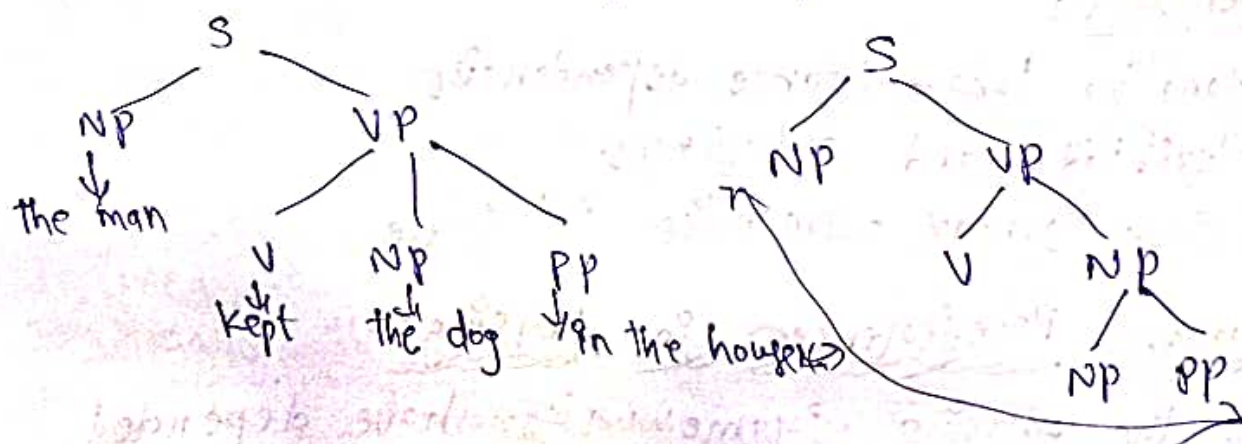 S
NP VP
the man
V NP PP
kept the dog in the house
S
NP VP
V NP
NP PP